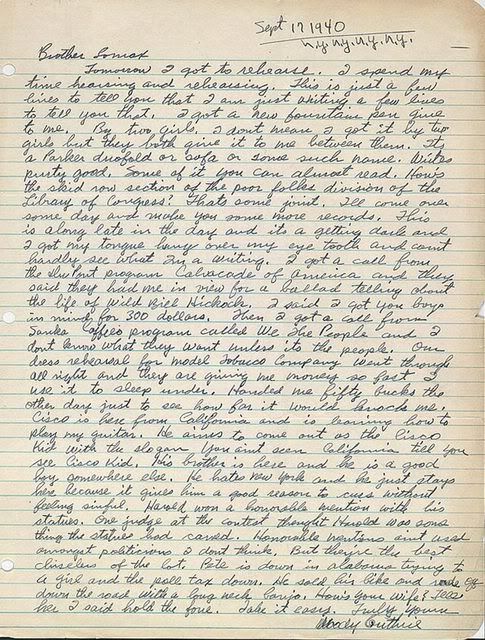 Sept 17 1940
N.Y. N.Y. N.Y. N.Y.
Brother Lomax
Tomorrow I got to rehearse. I spend my
time hearsing and rehearsing. This is just a few
lines to tell you that I am just writing a few lines
to tell you that. I got a new fountain pen give
to me. By two girls. I don't mean I got it by two
girls but they both give it to me between them. Its
a Parker duofold or sofa or some such name. Writes
purty good. Some of it you can almost read. Hows
the skid row section of the poor folks division of the
Library of Congress? Thats some joint. I'll come over
some day and make you some more records. This
is along late in the day and its a getting dark and
I got my tongue hung over my eye tooth and can't
hardly see what I'm a writing. I got a call from
the Du Pont program Calvacade of America and they
said they had me in view for a ballad telling about
the life of Wild Bill Hickock. I said I got you boys
in mind for 300 dollars. Then I got a call from
Sanka Coffee's program called We The People and I
dont know what they want unless its the people. Our
dress rehearsal for Model Tobacco Company went through
all right and they are giving me money so fast I
use it to sleep under. Handed me fifty bucks the
other day just to see how far it would knock me.
Cisco is here from California and is learning how to
play my guitar. He aims to come out as the Cisco
Kid with the slogan You aint seen California till you
see Cisco Kid. His brother is here and he is a good
boy somewhere else. He hates New York and he just stays
here because it gives him a good reason to cuss without
feeling sinful. Harold won a honorable mention with his
statues. One judge at the contest thought Harold was some
thing the statues had carved. Honorable mentions aint used
amongst politicians I dont think. But theyre the best
chiselers of the lot. Pete is down in alabama trying to
a girl and the poll tax down. He sold his bike and rode off
down the road with a long neck banjo. How's your Wife? Tell
her I said hold the fone. Take it easy. Truly yours
Woody Guthrie